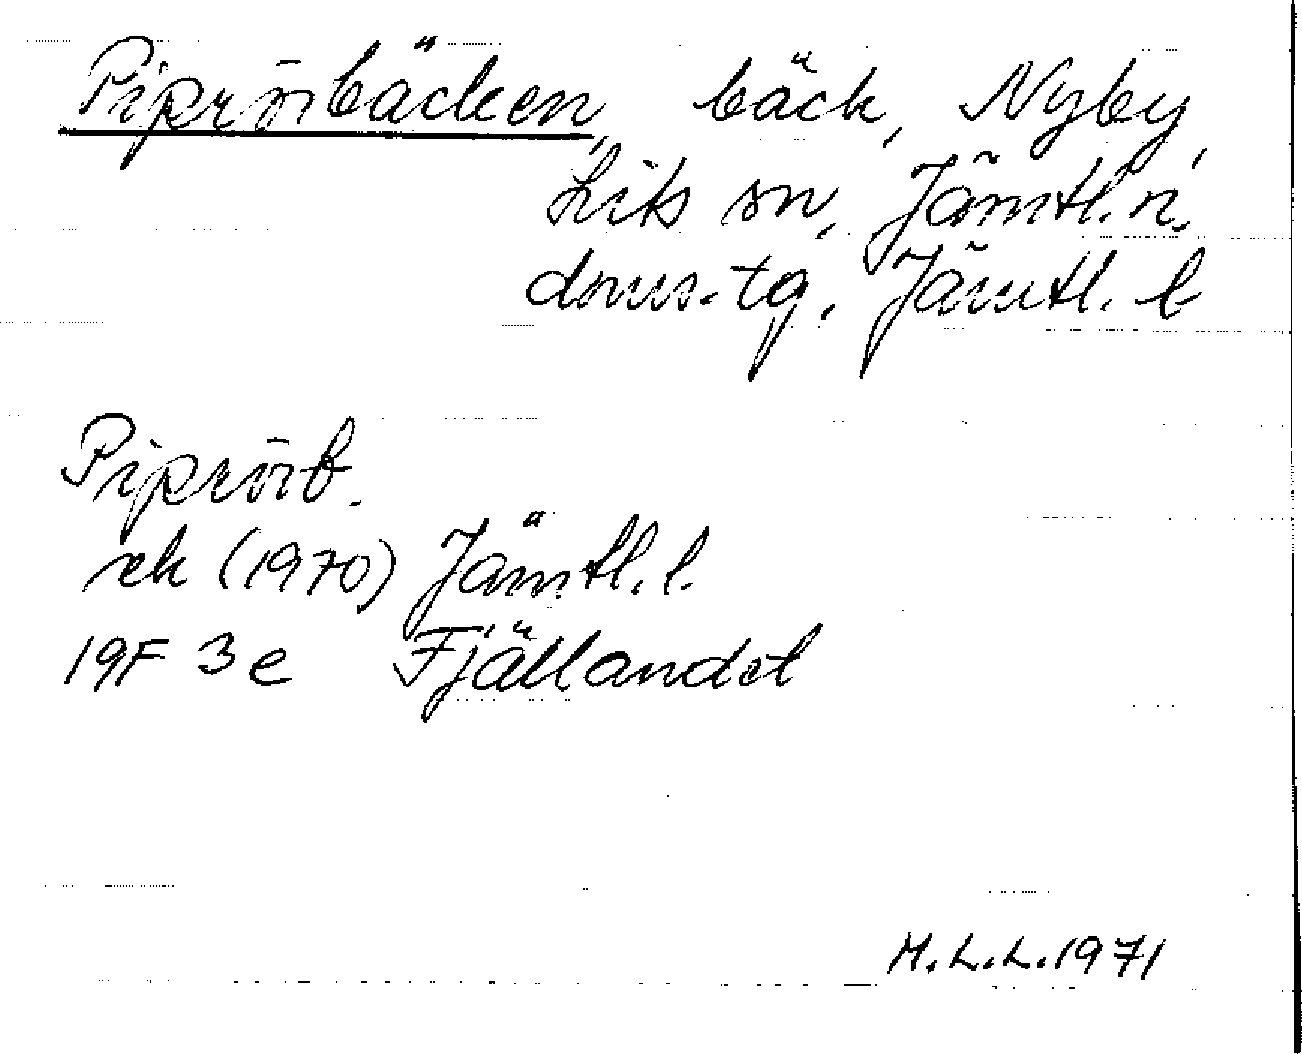 Piprörbäcken, bäck, Nyby,
Lits sn, Jämtl. n.
doms.tg, Jämtl. l
Piprörb.
ek (1970) Jämtl. l.
19F 3e Fjällandet
M.L.L. 1971